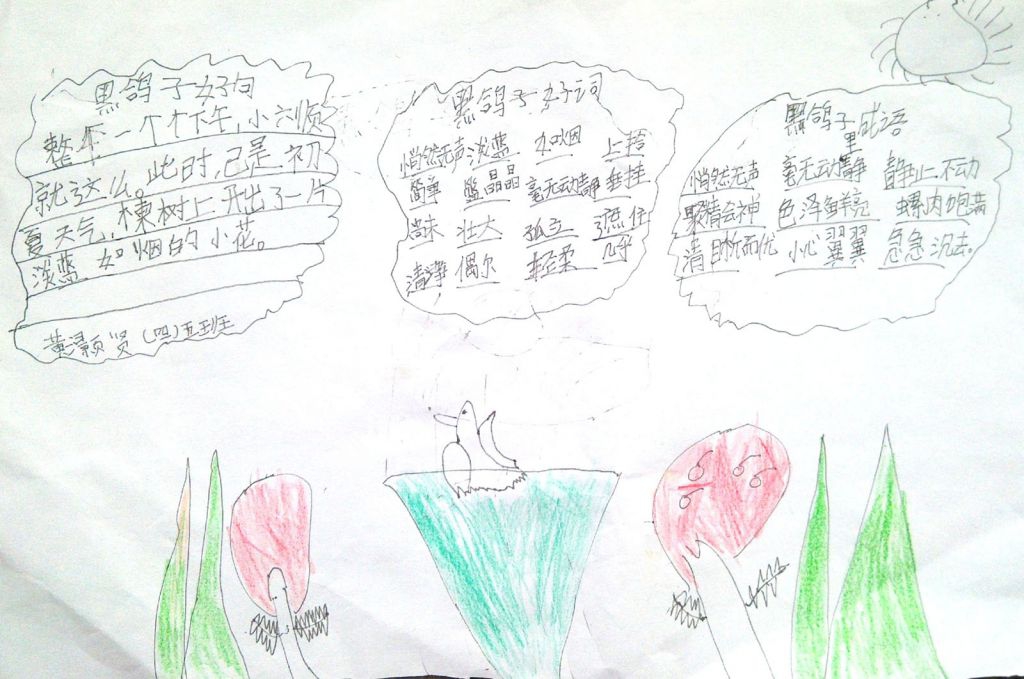 黑鸽子好句
整整一个下午,小六顺
就这么。此时,已是初
夏天气,楝树上开出了一片
淡蓝如烟的小花。
黄灏贤(四)五班
黑鸽子好词
悄然无声 淡蓝 如烟 上拎
简单 盛晶晶 毫无动静 垂挂
尚未 壮大 孤立
清 偶尔 轻柔 几乎
黑鸽子里成语
悄然无声 毫无动静 静止不动
聚精会神 色泽鲜亮 螺肉饱满
清目 而优 小心翼翼 急急沉去。